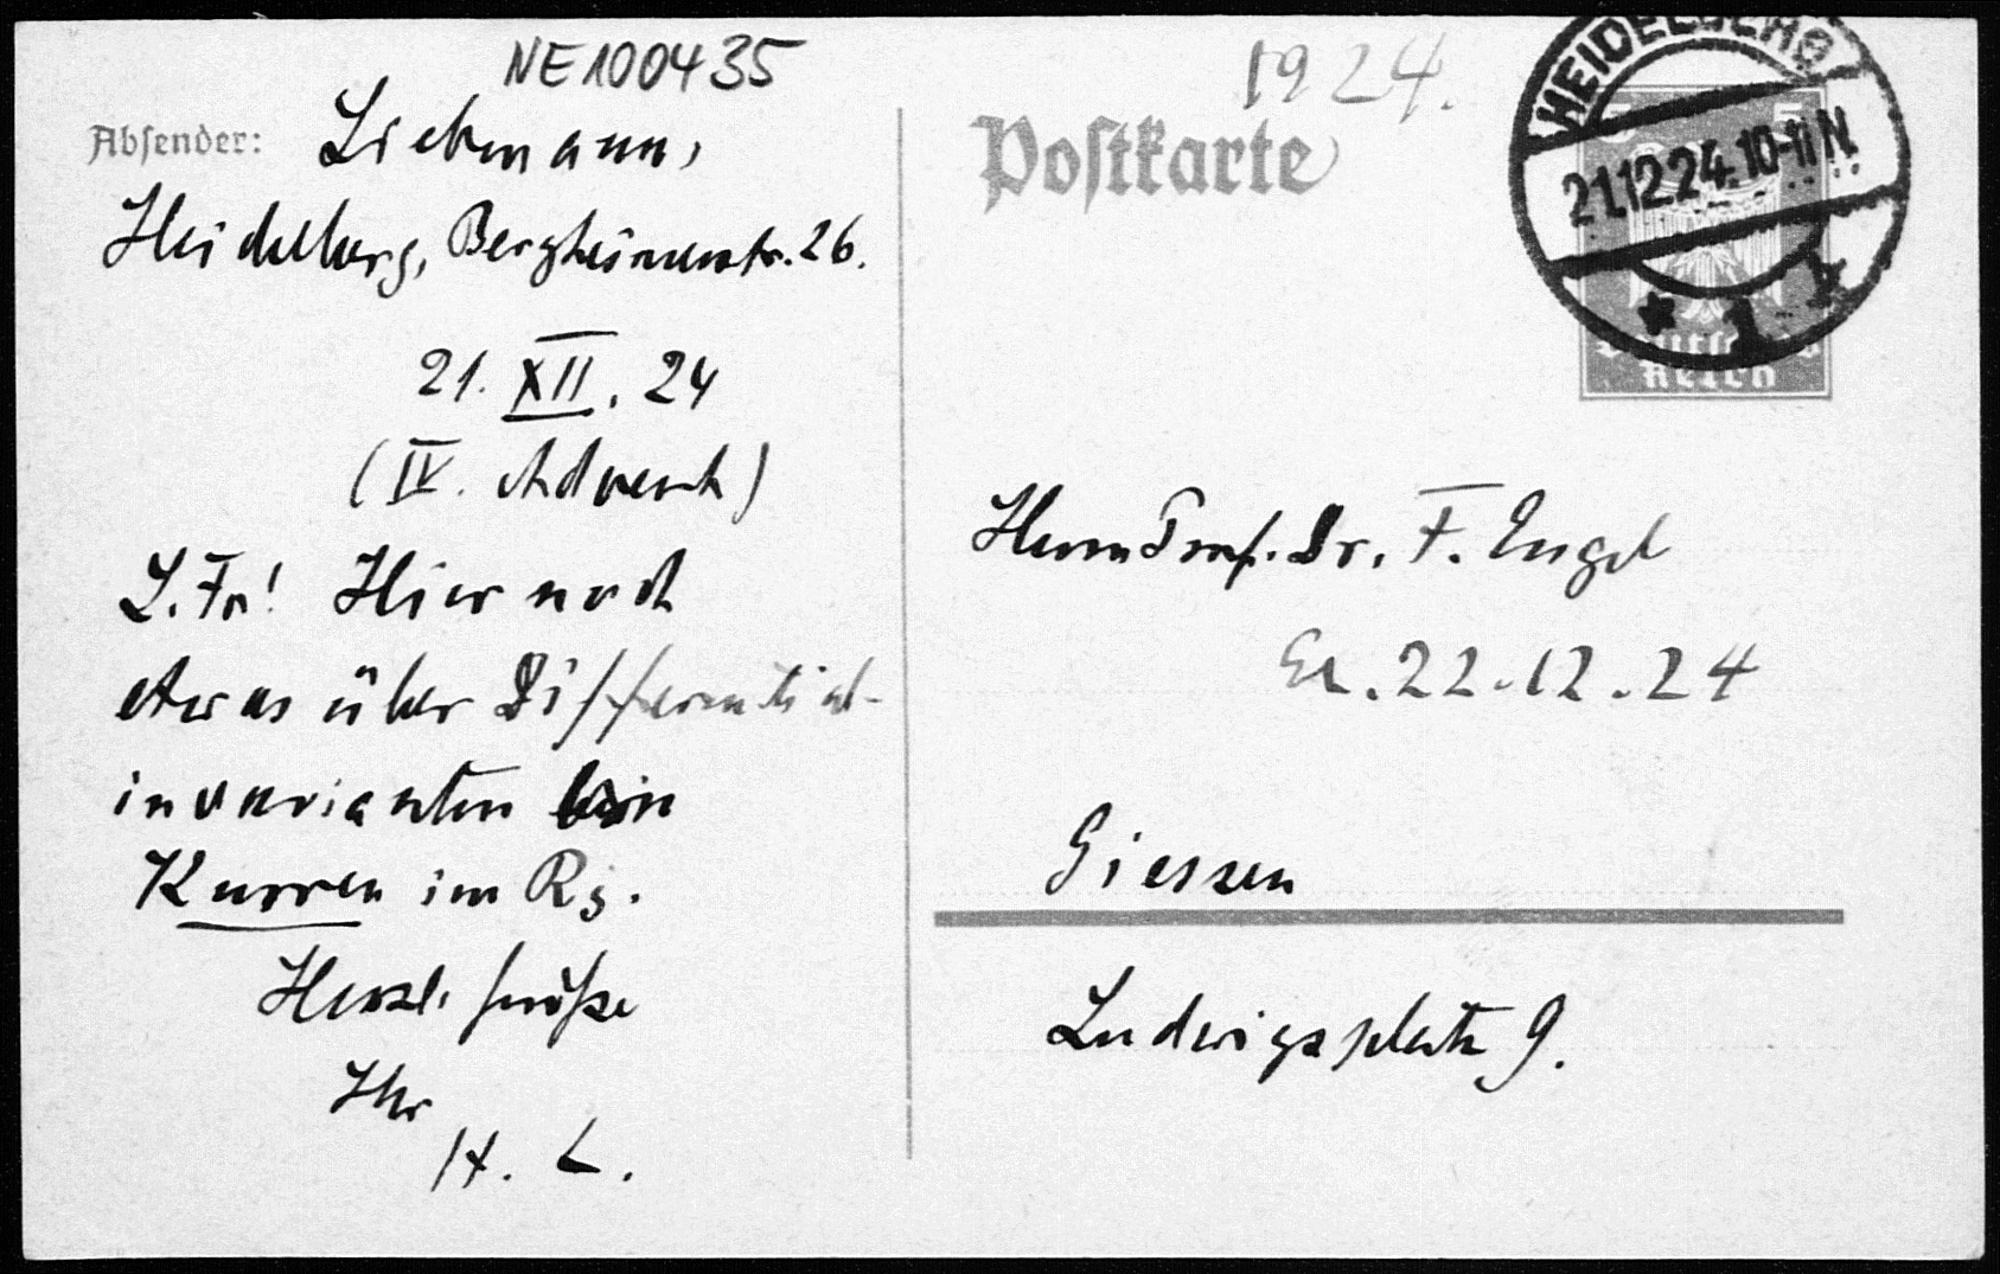 NE100435
Absender: Liebmann,
Heidelberg, Bergheimerstr. 26.
21. XII. 24
(IV. Advent)
L. Fr! Hier noch
etwas über Differential-
invarianten bei
Kurven im R3.
Herzl. Grüße
Ihr
H. L.
1924.
Postkarte
HEIDELBERG
21.12.24.10-11 N
* 1
Deutsches
Reich
Herrn Prof. Dr. F. Engel
22.12.24
Giessen
Ludwigsplatz 9.